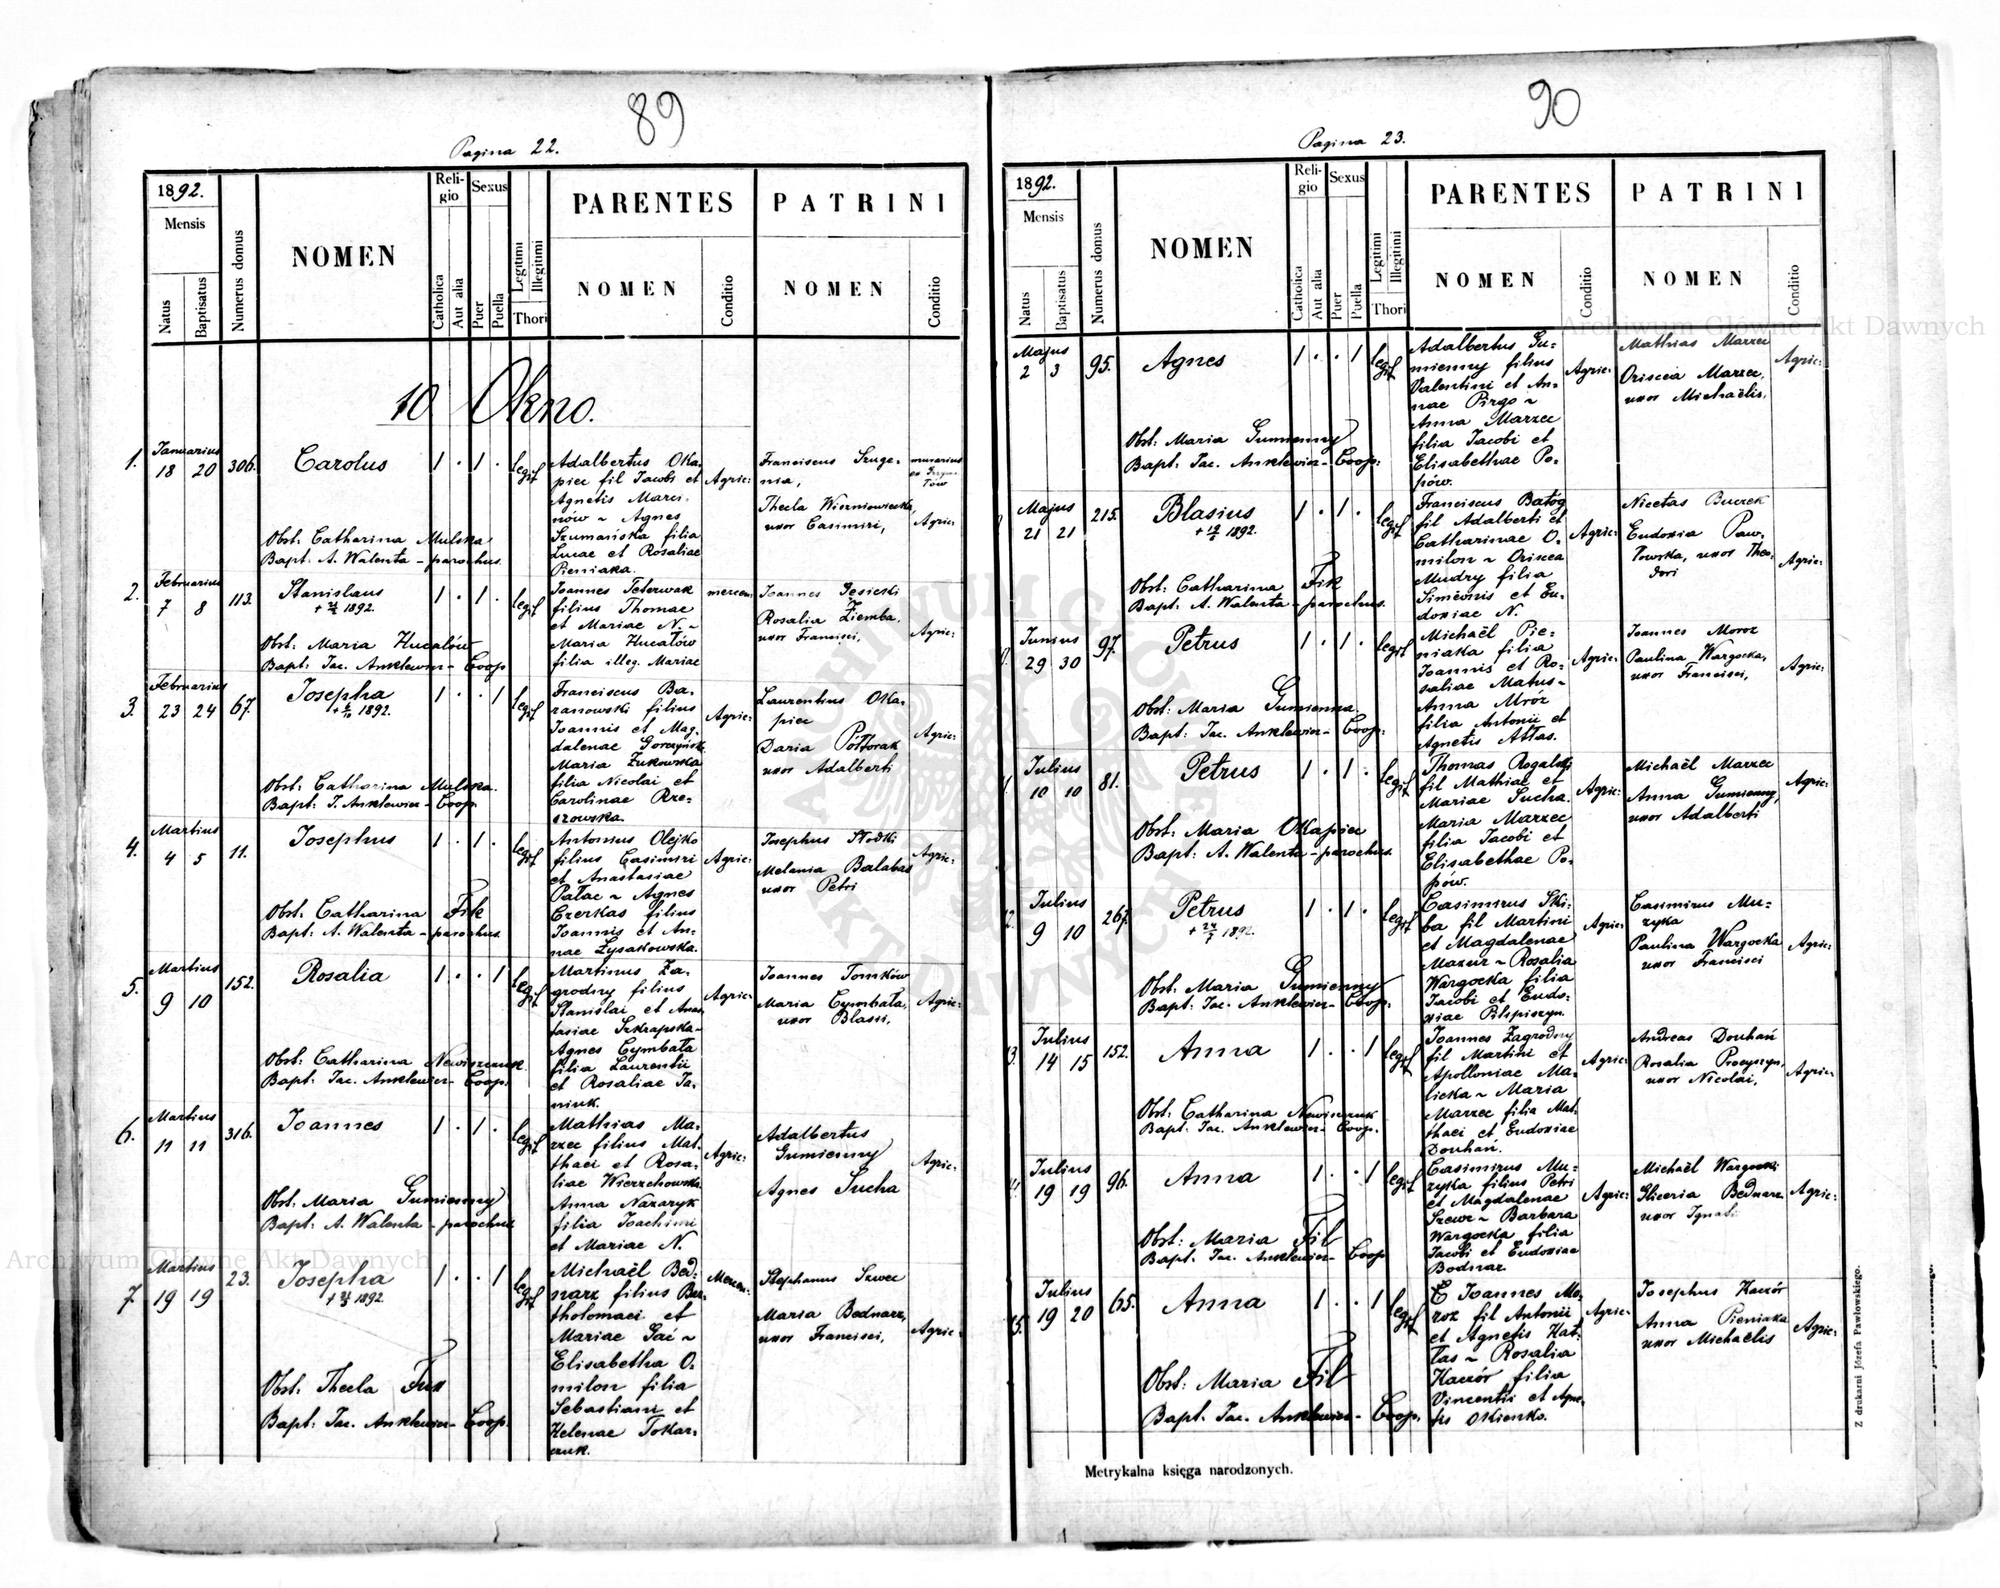 89
Pagina 22.
1892.
Mensis
Natus
Baptisatus
Numerus domus
NOMEN
Reli-
gio
Catholica
Aut alia
Sexus
Puer
Puella
Legitimi
Illegitimi
Thori
PARENTES
NOMEN
Conditio
PATRINI
NOMEN
Conditio
10 Okno.
1. Januarius
18 20 306.
Carolus
1 . 1 . legit
Adalbertus Oka-
piec fil Jacobi et
Agnetis Marci-
nów ~ Agnes
Szumańska filia
Lucae et Rosaliae
Pieniaka.
Agric:
Franciscus Szuge-
nia,
murarius
Thecla Wiszniowiecka,
uxor Casimiri,
Agric:
Obst: Catharina Mulska
Bapt: A. Walenta - parochus.
2. Februarius
7 8 113.
Stanislaus
1892.
1 . 1 . legit
Joannes Teterwak
filius Thomae
et Mariae N. ~
Maria Hucałów
filia illeg. Mariae
Joannes Gesicki
Rosalia Ziemba,
uxor Francisci,
Agric:
Obst: Maria Hucałów
Bapt: Jac. Anklewicz - Coop
3. Februarius
23 24 67.
Josepha
1892.
1 . . 1 legit
Franciscus Ba-
ranowski filius
Joannis et Mag-
dalenae Gorczyńsk-
Maria Żukowska
filia Nicolai et
Carolinae Rze-
szowska.
Agric:
Laurentius Oka-
piec
Daria Półtorak
uxor Adalberti
Agric:
Obst: Catharina Mulska.
Bapt: J. Anklewicz - Coop.
4. Martius
4 5 11.
Josephus
1 . 1 . legit
Antonius Olejko
filius Casimiri
et Anastasiae
Pałac ~ Agnes
Czerkas filius
Joannis et An-
nae Łysakowska.
Agric:
Josephus Słodki
Melania Bałabas
uxor Petri
Agric:
Obst: Catharina Fik
Bapt: A. Walenta - parochus.
5. Martius
9 10 152.
Rosalia
1 . . 1 legit
Martinus Za-
grodny filius
Stanislai et Anas-
tasiae Szkrapska-
Agnes Cymbała
filia Laurentii
et Rosaliae Ja-
niuk.
Agric:
Joannes Tomków
Maria Cymbała,
uxor Blasii,
Agric:
Obst: Catharina Newiszczuk
Bapt: Jac. Anklewicz - Coop.
6. Martius
11 11 316.
Joannes
1 . 1 . legit
Mathias Ma-
rzec filius Mat-
thaei et Rosa-
liae Wierzchowska
Anna Nazaryk
filia Joachimi
et Mariae N.
Agric:
Adalbertus
Gumienny
Agnes Sucha
Agric:
Obst: Maria Gumienny
Bapt: A. Walenta - parochus
7 Martius
19 19 23.
Josepha
1892.
1 . . 1 legit
Michaël Bed-
narz filius Bar-
tholomaei et
Mariae Gać ~
Elisabetha O-
milon filia
Sebastiani et
Helenae Tokar-
czuk.
Stephanus Szwec
Maria Bednarz,
uxor Francisci,
Agric:
Obst: Thecla Fux
Bapt: Jac. Anklewicz - Coop.
90
Pagina 23.
1892.
Mensis
Natus
Baptisatus
Numerus domus
NOMEN
Reli-
gio
Catholica
Aut alia
Sexus
Puer
Puella
Legitimi
Illegitimi
Thori
PARENTES
NOMEN
Conditio
PATRINI
NOMEN
Conditio
Majus
2 3 95.
Agnes
1 . . 1 legit
Adalbertus Gu-
mienny filius
Valentini et An-
nae Pirgo ~
Anna Marzec
filia Jacobi et
Elisabethae Po-
pów.
Agric:
Mathias Marzec
Oriscia Marzec,
uxor Michaëlis,
Agric:
Obst: Maria Gumienny
Bapt: Jac. Anklewicz - Coop:
Majus
21 21 215.
Blasius
1892.
1 . 1 . legit
Franciscus Batóg
fil Adalberti et
Catharinae O-
milon ~ Orisca
Mudry filia
Simeonis et Eu-
doxiae N.
Agric:
Nicetas Buczek
Eudoxia Paw-
łowska, uxor Theo-
dori
Agric:
Obst: Catharina Fik
Bapt: A. Walenta - parochus.
Junius
29 30 97.
Petrus
1 . 1 . legit
Michaël Pie-
niaka filia
Joannis et Ro-
saliae Matus ~
Anna Mróz
filia Antonii et
Agnetis Atłas.
Agric:
Joannes Moroz
Paulina Wargocka,
uxor Francisci,
Agric:
Obst: Maria Gumienna.
Bapt: Jac. Anklewicz - Coop:
Julius
10 10 81.
Petrus
1 . 1 . legit
Thomas Rogalski
fil Mathiae et
Mariae Sucha.
Maria Marzec
filia Jacobi et
Elisabethae Po-
pów.
Agric:
Michaël Marzec
Anna Gumienny,
uxor Adalberti
Agric:
Obst: Maria Okapiec
Bapt: A. Walenta - parochus.
Julius
9 10 267.
Petrus
+ 24/7 1892.
1 . 1 . legit
Casimirus Ski-
ba fil Martini
et Magdalenae
Mazur ~ Rosalia
Wargocka filia
Jacobi et Eudo-
xiae Pilipiszyn.
Agric:
Casimirus Mu-
zyka
Paulina Wargocka
uxor Francisci
Agric:
Obst: Maria Gumienny
Bapt: Jac. Anklewicz - Coop.
Julius
14 15 152.
Anna
1 . . 1 legit
Joannes Zagrodny
fil Martini et
Apolloniae Ma-
licka ~ Maria
Marzec filia Mat-
thaei et Eudoxiae
Douhań.
Agric:
Andreas Douhań
Rosalia Procyszyn,
uxor Nicolai,
Agric:
Obst: Catharina Newiszczuk
Bapt: Jac. Anklewicz - Coop.
Julius
19 19 96.
Anna
1 . . 1 legit
Casimirus Mu-
zyka filius Petri
et Magdalenae
Szewc ~ Barbara
Wargocka filia
Jacobi et Eudoxiae
Bodnar
Agric:
Michaël Wargocki
Gliceria Bednarz
uxor Ignati
Agric:
Obst: Maria Fil
Bapt: Jac. Anklewicz - Coop
15. Julius
19 20 65.
Anna
1 . . 1 legit
Joannes Mo-
roz fil Antonii
et Agnetis Hat-
łas ~ Rosalia
Kaczór filia
Vincentii et Agne-
tis Okienko.
Agric:
Josephus Kaczór
Anna Pieniaka
uxor Michaëlis
Agric:
Obst: Maria Fil
Bapt: Jac. Anklewicz - Coop.
Metrykalna księga narodzonych.
Z drukarni Józefa Pawłowskiego.
Archiwum Główne Akt Dawnych
Archiwum Główne Akt Dawnych
ARCHIWUM GŁÓWNE AKT DAWNYCH